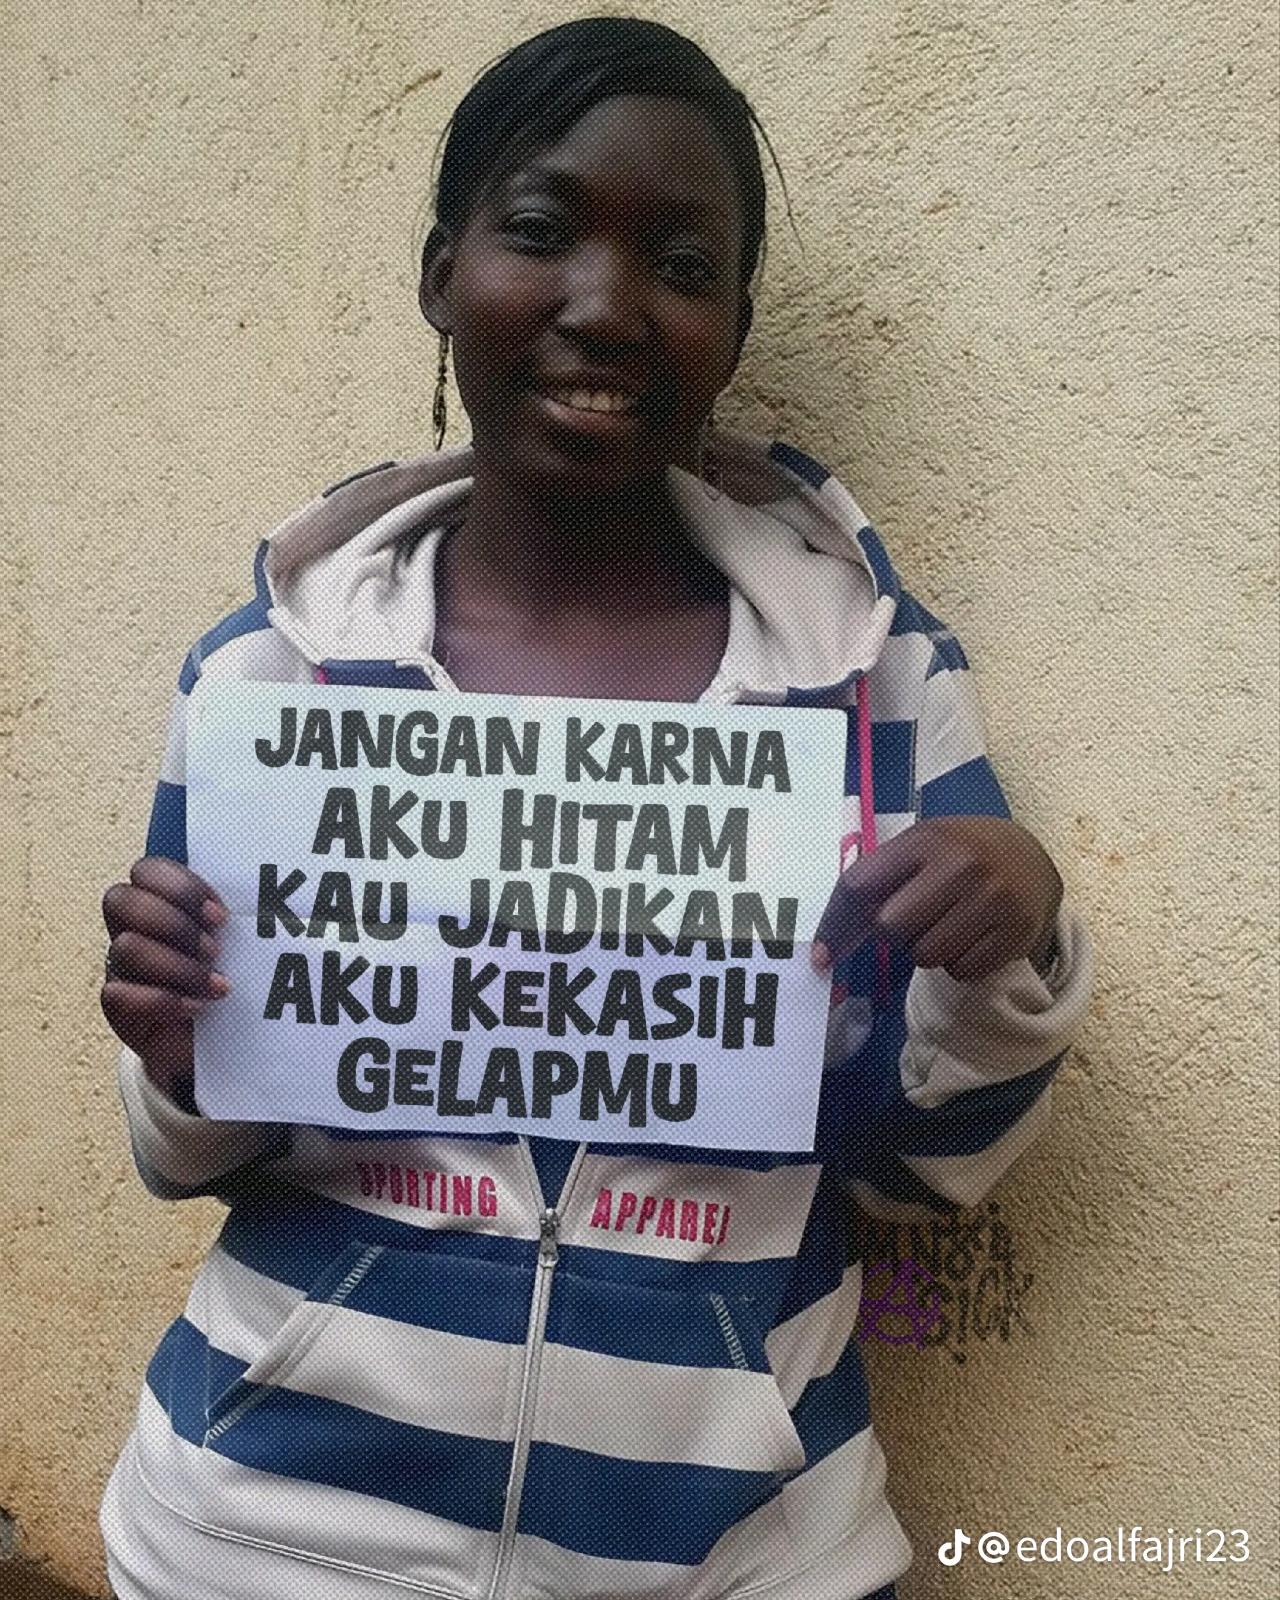 JANGAN KARNA
AKU HITAM
KAU JADIKAN
AKU KEKASIH
GELAPMU
SPORTING APPAREL
@edoalfajri23